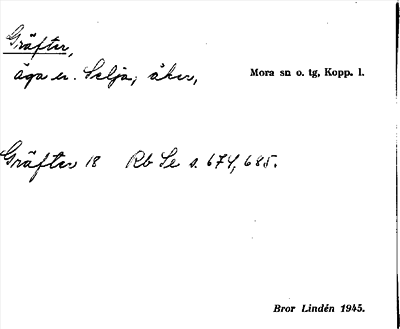 Gräfter,
äga er. Selja; åker, Mora sn o. tg, Kopp. l.
Gräfter 18 Rb Se s. 674, 685.
Bror Lindén 1945.